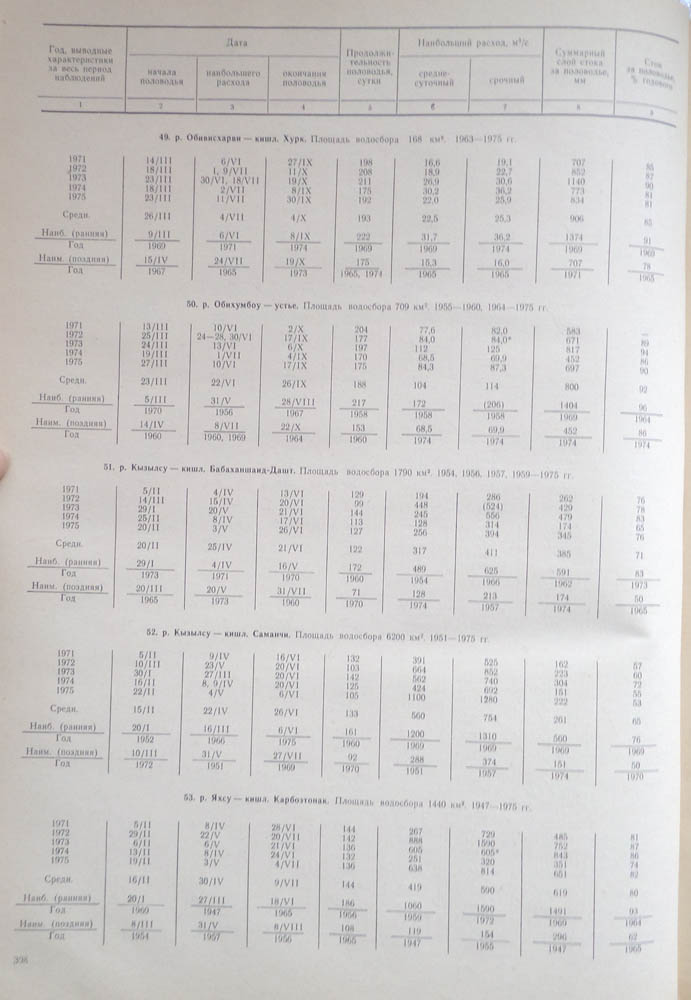 Год, выводные характеристики за весь период наблюдений | Дата | Продолжительность половодья, сутки | Наибольший расход, м³/с | Суммарный слой стока за половодье, мм | Сток за половодье, % годового
начала половодья | наибольшего расхода | окончания половодья | средне-суточный | срочный
1 2 3 4 5 6 7 8 9
49. р. Обивисхарви — кишл. Хурк. Площадь водосбора 168 км². 1963—1975 гг.
1971 14/III 6/VI 27/IX 198 16,6 19,1 707 85
1972 18/III 1, 9/VII 11/X 208 18,9 22,7 852 87
1973 23/III 30/VI, 18/VII 19/X 211 26,9 30,6 1140 90
1974 18/III 2/VII 8/IX 175 30,2 36,2 773 81
1975 23/III 11/VII 30/IX 192 22,0 25,9 834 81
Средн. 26/III 4/VII 4/X 193 22,5 25,3 906 85
Наиб. (ранняя) 9/III 6/VI 8/IX 222 31,7 36,2 1374 91
Год 1969 1971 1974 1969 1969 1974 1969 1960
Наим. (поздняя) 15/IV 24/VII 19/X 175 15,3 16,0 707 78
Год 1967 1965 1973 1965, 1974 1965 1965 1971 1965
50. р. Обихумбоу — устье. Площадь водосбора 709 км². 1955—1960, 1964—1975 гг.
1971 13/III 10/VI 2/X 204 77,6 82,0 583 —
1972 25/III 24—28, 30/VI 17/IX 177 84,0 84,0* 671 89
1973 24/III 13/VI 6/X 197 112 125 817 94
1974 19/III 1/VII 4/IX 170 68,5 69,9 452 86
1975 27/III 10/VI 17/IX 175 84,3 87,3 697 90
Средн. 23/III 22/VI 26/IX 188 104 114 800 92
Наиб. (ранняя) 5/III 31/V 28/VIII 217 172 (206) 1404 96
Год 1970 1956 1967 1958 1958 1958 1969 1964
Наим. (поздняя) 14/IV 8/VII 22/X 153 68,5 69,9 452 86
Год 1960 1960, 1969 1964 1960 1974 1974 1974 1974
51. р. Кызылсу — кишл. Бабаханшаид-Дашт. Площадь водосбора 1790 км². 1954, 1956, 1957, 1959—1975 гг.
1971 5/II 4/IV 13/VI 129 194 286 262 76
1972 14/III 15/IV 20/VI 99 448 (524) 429 78
1973 29/I 20/V 21/VI 144 245 556 479 83
1974 25/II 8/IV 17/VI 113 128 314 174 65
1975 20/II 3/V 26/VI 127 256 394 345 76
Средн. 20/II 25/IV 21/VI 122 317 411 385 71
Наиб. (ранняя) 29/I 4/IV 16/V 172 489 625 591 83
Год 1973 1971 1970 1960 1954 1966 1962 1973
Наим. (поздняя) 20/III 20/V 31/VII 71 128 213 174 50
Год 1965 1973 1960 1970 1974 1957 1974 1965
52. р. Кызылсу — кишл. Саманчи. Площадь водосбора 6200 км². 1951—1975 гг.
1971 5/II 9/IV 16/VI 132 391 525 162 57
1972 10/III 23/V 20/VI 103 664 852 223 60
1973 30/I 27/III 20/VI 142 562 740 304 72
1974 16/II 8, 9/IV 20/VI 125 424 692 151 55
1975 22/II 4/V 6/VI 105 1100 1280 222 53
Средн. 15/II 22/IV 26/VI 133 560 754 261 65
Наиб. (ранняя) 20/I 16/III 6/VI 161 1200 1310 560 76
Год 1952 1966 1975 1960 1969 1969 1969 1969
Наим. (поздняя) 10/III 31/V 27/VII 92 288 374 151 50
Год 1972 1951 1969 1970 1951 1957 1974 1970
53. р. Яхсу — кишл. Карбозтонак. Площадь водосбора 1440 км². 1947—1975 гг.
1971 5/II 8/IV 28/VI 144 267 729 485 81
1972 29/II 22/V 20/VII 142 888 1590 752 87
1973 6/II 6/V 21/VI 136 605 605* 843 86
1974 13/II 8/IV 24/VI 132 251 320 351 74
1975 19/II 3/V 4/VII 136 638 814 651 82
Средн. 16/II 30/IV 9/VII 144 419 590 619 80
Наиб. (ранняя) 20/I 27/III 18/VI 186 1060 1590 1491 93
Год 1969 1947 1965 1956 1959 1972 1969 1964
Наим. (поздняя) 8/III 31/V 8/VIII 108 119 154 296 62
Год 1954 1957 1956 1965 1947 1955 1947 1965
398